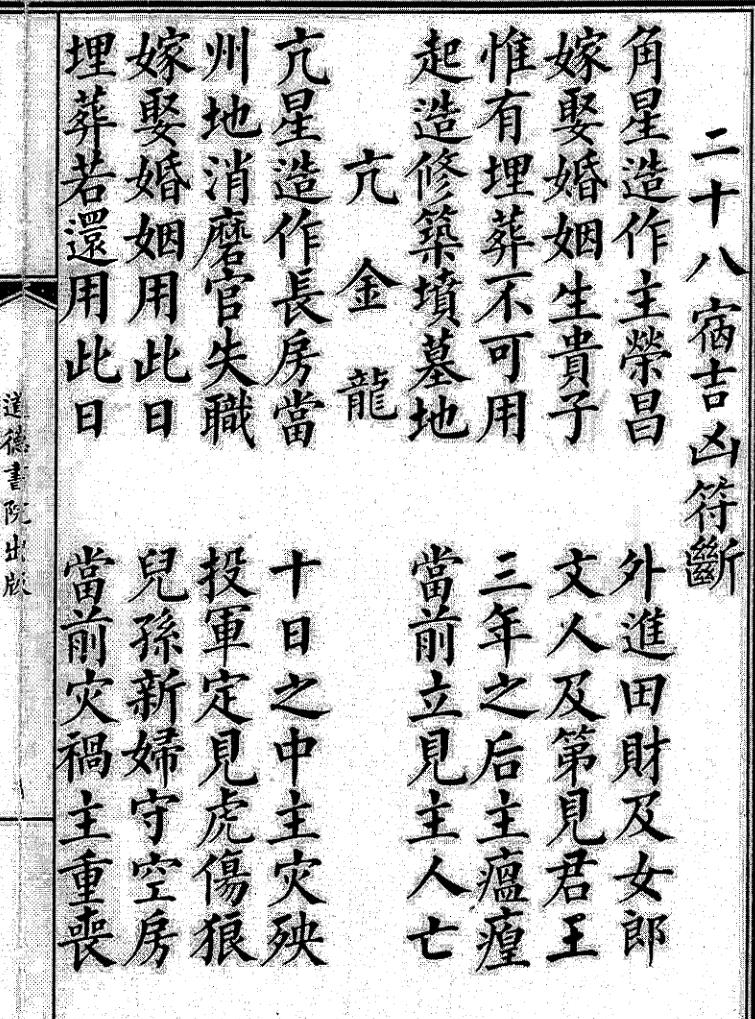 二十八宿吉凶符斷
角星造作主榮昌　外進田財及女郎
嫁娶婚姻生貴子　文人及第見君王
惟有埋葬不可用　三年之后主瘟㾮
起造修築墳墓地　當前立見主人亡
亢金龍
亢星造作長房當　十日之中主灾殃
州地消磨官失職　投軍定見虎傷狼
嫁娶婚姻用此日　兒孫新婦守空房
埋葬若還用此日　當前灾禍主重喪
道德書院出版